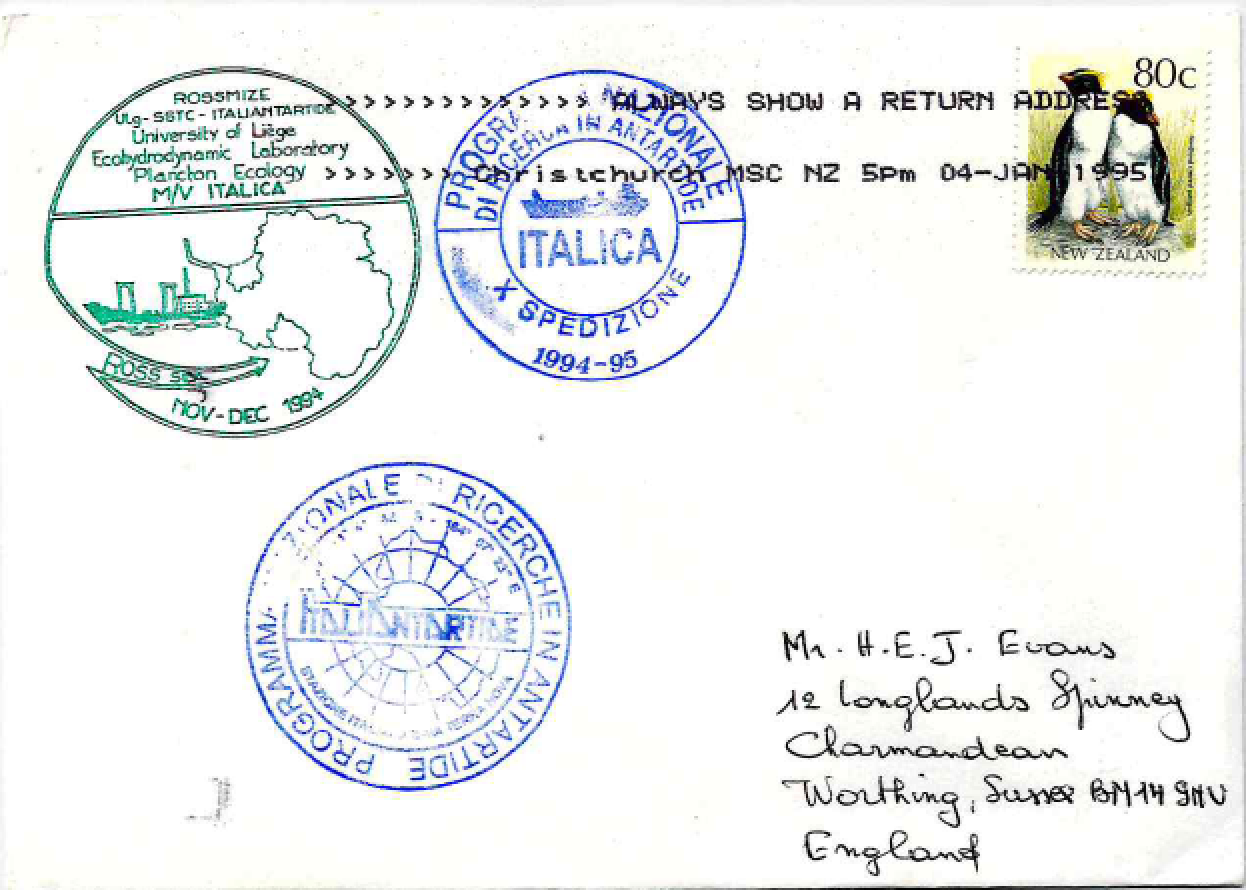 ROSSMIZE
ULg-SSTC-ITALIANTARTIDE
University of Liège
Ecohydrodynamic Laboratory
Plancton Ecology
M/V ITALICA
ROSS sea
NOV-DEC 1994
>>>>>>>>>>>>> ALWAYS SHOW A RETURN ADDRESS
>>>>>> Christchurch MSC NZ 5pm 04-JAN 1995
PROGRA NAZIONALE
DI RICERCA IN ANTARTIDE
ITALICA
X SPEDIZIONE
1994-95
80c
NEW ZEALAND
PROGRAMMA ZIONALE DI RICERCHE IN ANTARTIDE
164° 07' 23" E
ITALIANTARTIDE
STAZIONE
Mr. H.E.J. Evans
12 Longlands Spinney
Charmandean
Worthing, Sussex BN14 9NU
England